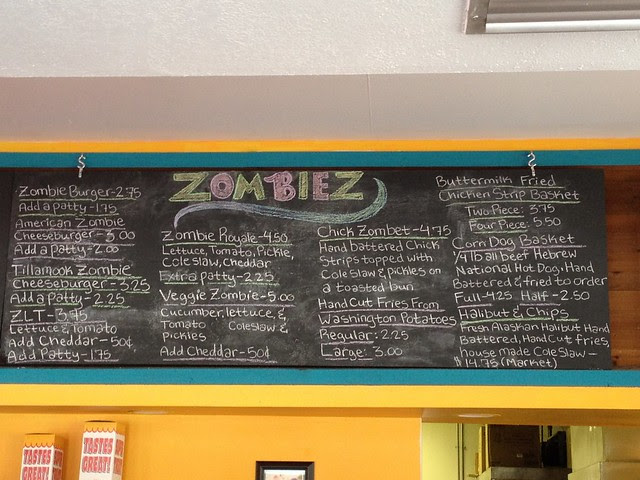 ZOMBIEZ
Zombie Burger-2.75
Add a patty-1.75
American Zombie
Cheeseburger-3.00
Add a patty-2.00
Tillamook Zombie
Cheeseburger-3.25
Add a patty-2.25
ZLT-3.75
Lettuce & Tomato
Add Cheddar-50¢
Add Patty-1.75
Zombie Royale-4.50
Lettuce, Tomato, Pickle,
Cole slaw, Cheddar
Extra patty-2.25
Veggie Zombie-5.00
Cucumber, lettuce, &
Tomato Coleslaw &
pickles
Add Cheddar-50¢
Chick Zombet-4.75
Hand battered Chick
Strips topped with
Cole slaw & pickles on
a toasted bun
Hand Cut Fries From
Washington Potatoes
Regular: 2.25
Large: 3.00
Buttermilk Fried
Chicken Strip Basket
Two Piece: 3.75
Four Piece: 5.50
Corn Dog Basket
1/4 lb all beef Hebrew
National Hot Dog, Hand
Battered & fried to order
Full-4.25 Half-2.50
Halibut & Chips
Fresh Alaskan Halibut Hand
Battered, Hand Cut fries,
house made Cole Slaw-
$14.75 (Market)
TASTES
GREAT!
TASTES
GREAT!